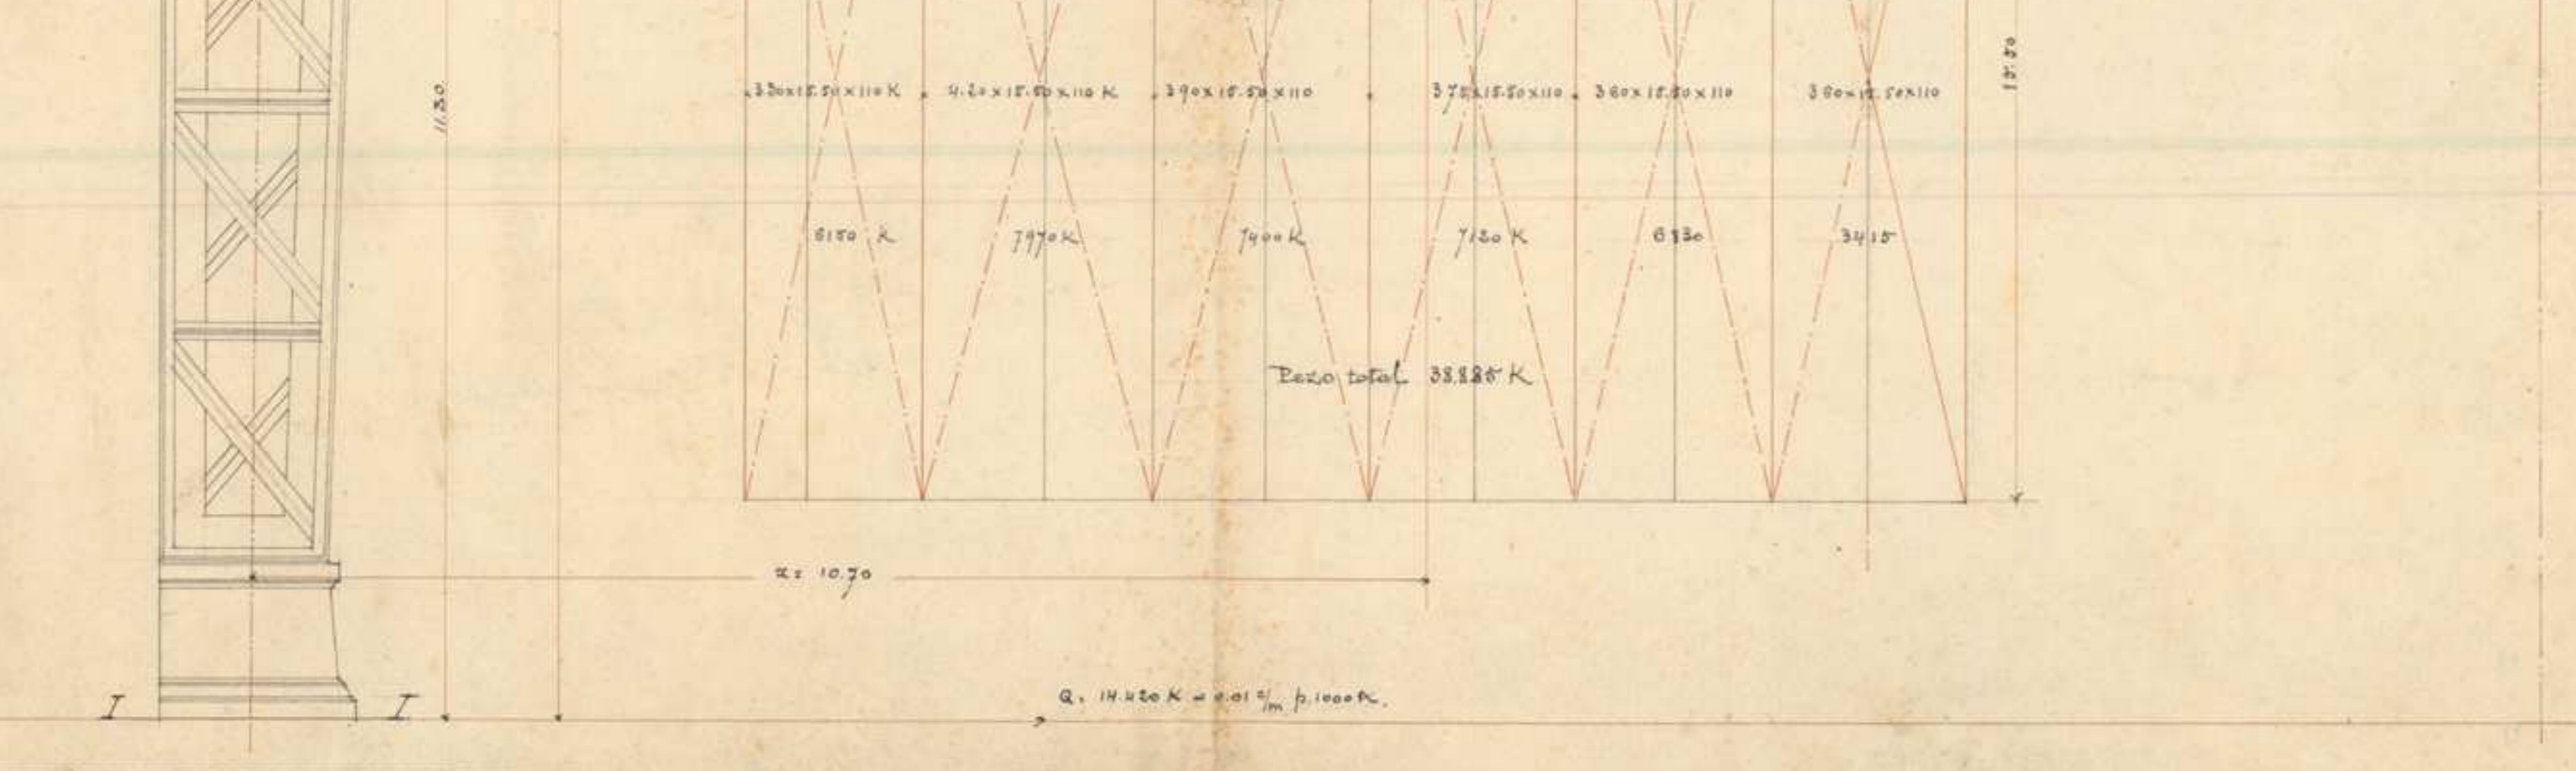 11.30
15.50
3.30x15.50x110 K
4.20x15.50x110 K
390x15.50x110
375x15.50x110
360x15.50x110
360x15.50x110
6150 K
7970 K
7400 K
7120 K
6830
3415
Pezo total 38.885 K
x = 10.70
I I
Q. 14.420 K = 0.01 c/m p. 1000 K.